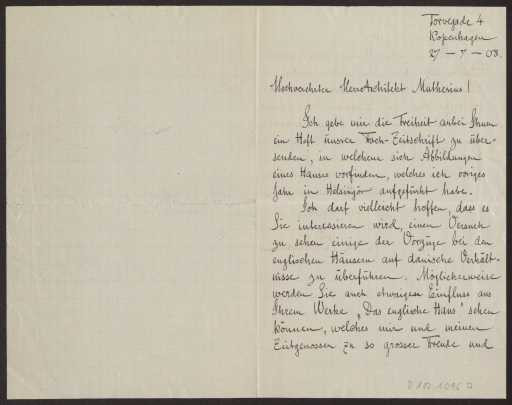 Torvegade 4
Kopenhagen
27 – 7 – 08.
Hochverehrter Herr Architekt Muthesius!
Ich gebe mir die Freiheit anbei Ihnen
ein Heft unsrer Fach-Zeitschrift zu über-
senden, in welchem sich Abbildungen
eines Hauses vorfinden, welches ich voriges
Jahr in Helsingör aufgeführt habe.
Ich darf vielleicht hoffen, dass es
Sie interessieren wird, einen Versuch
zu sehen einige der Vorzüge bei den
englischen Häusern auf dänische Verhält-
nisse zu überführen. Möglicherweise
werden Sie auch etwaigen Einfluss aus
Ihrem Werke „Das englische Haus" sehen
können, welches mir und meinen
Zeitgenossen zu so grosser Freude und